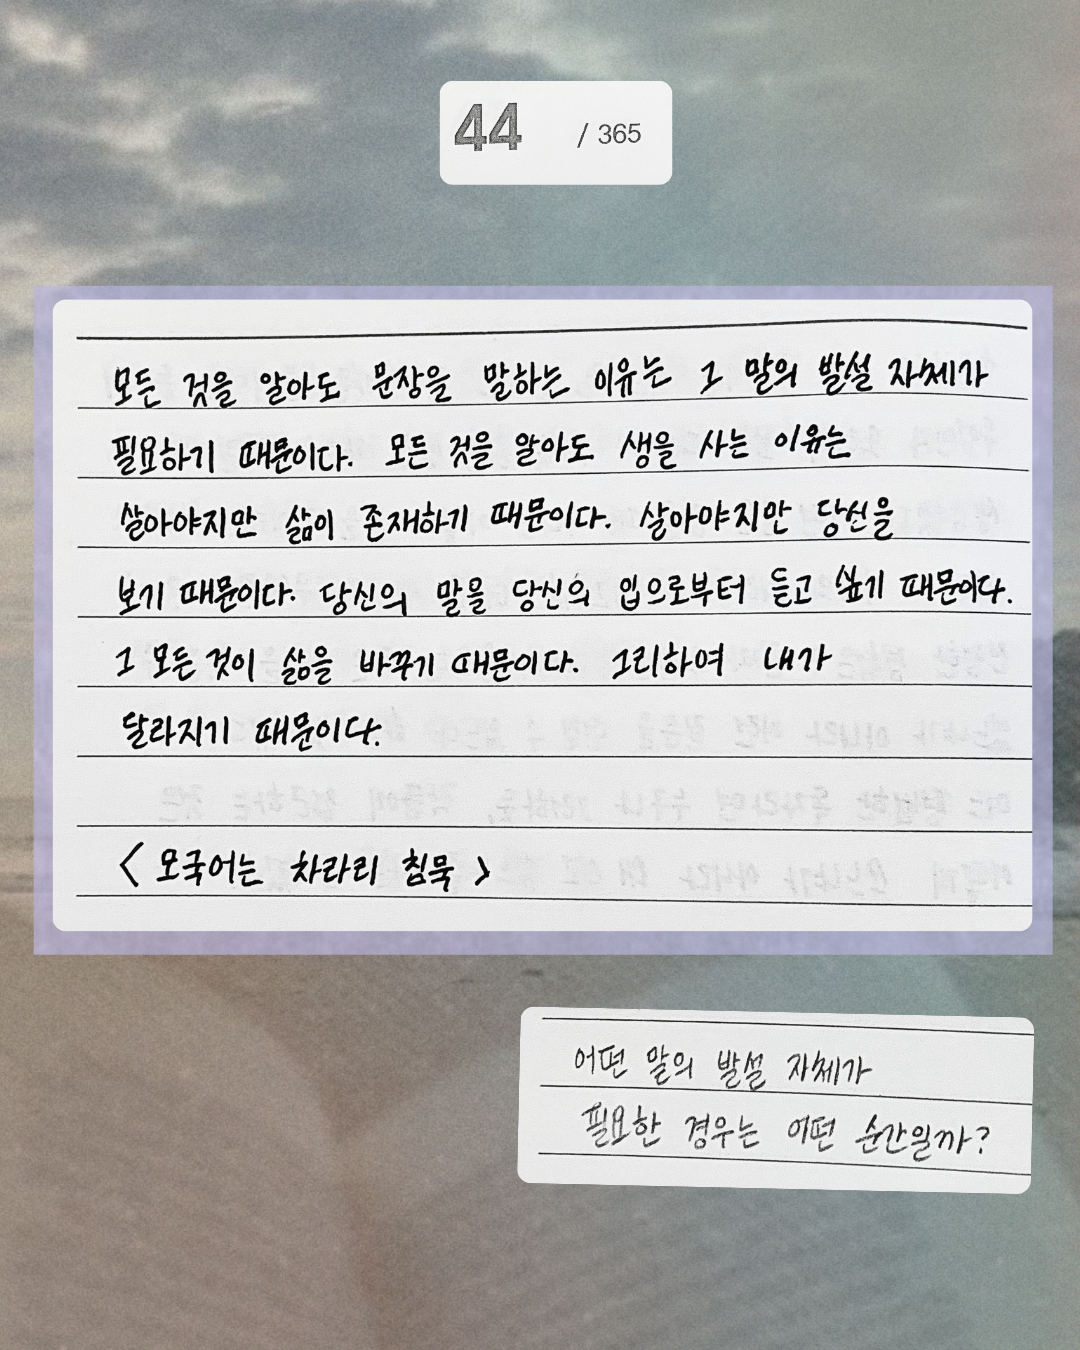 44 / 365
모든 것을 알아도 문장을 말하는 이유는 그 말의 발설 자체가
필요하기 때문이다. 모든 것을 알아도 생을 사는 이유는
살아야지만 삶이 존재하기 때문이다. 살아야지만 당신을
보기 때문이다. 당신의 말을 당신의 입으로부터 듣고 싶기 때문이다.
그 모든 것이 삶을 바꾸기 때문이다. 그리하여 내가
달라지기 때문이다.
< 모국어는 차라리 침묵 >
어떤 말의 발설 자체가
필요한 경우는 어떤 순간일까?